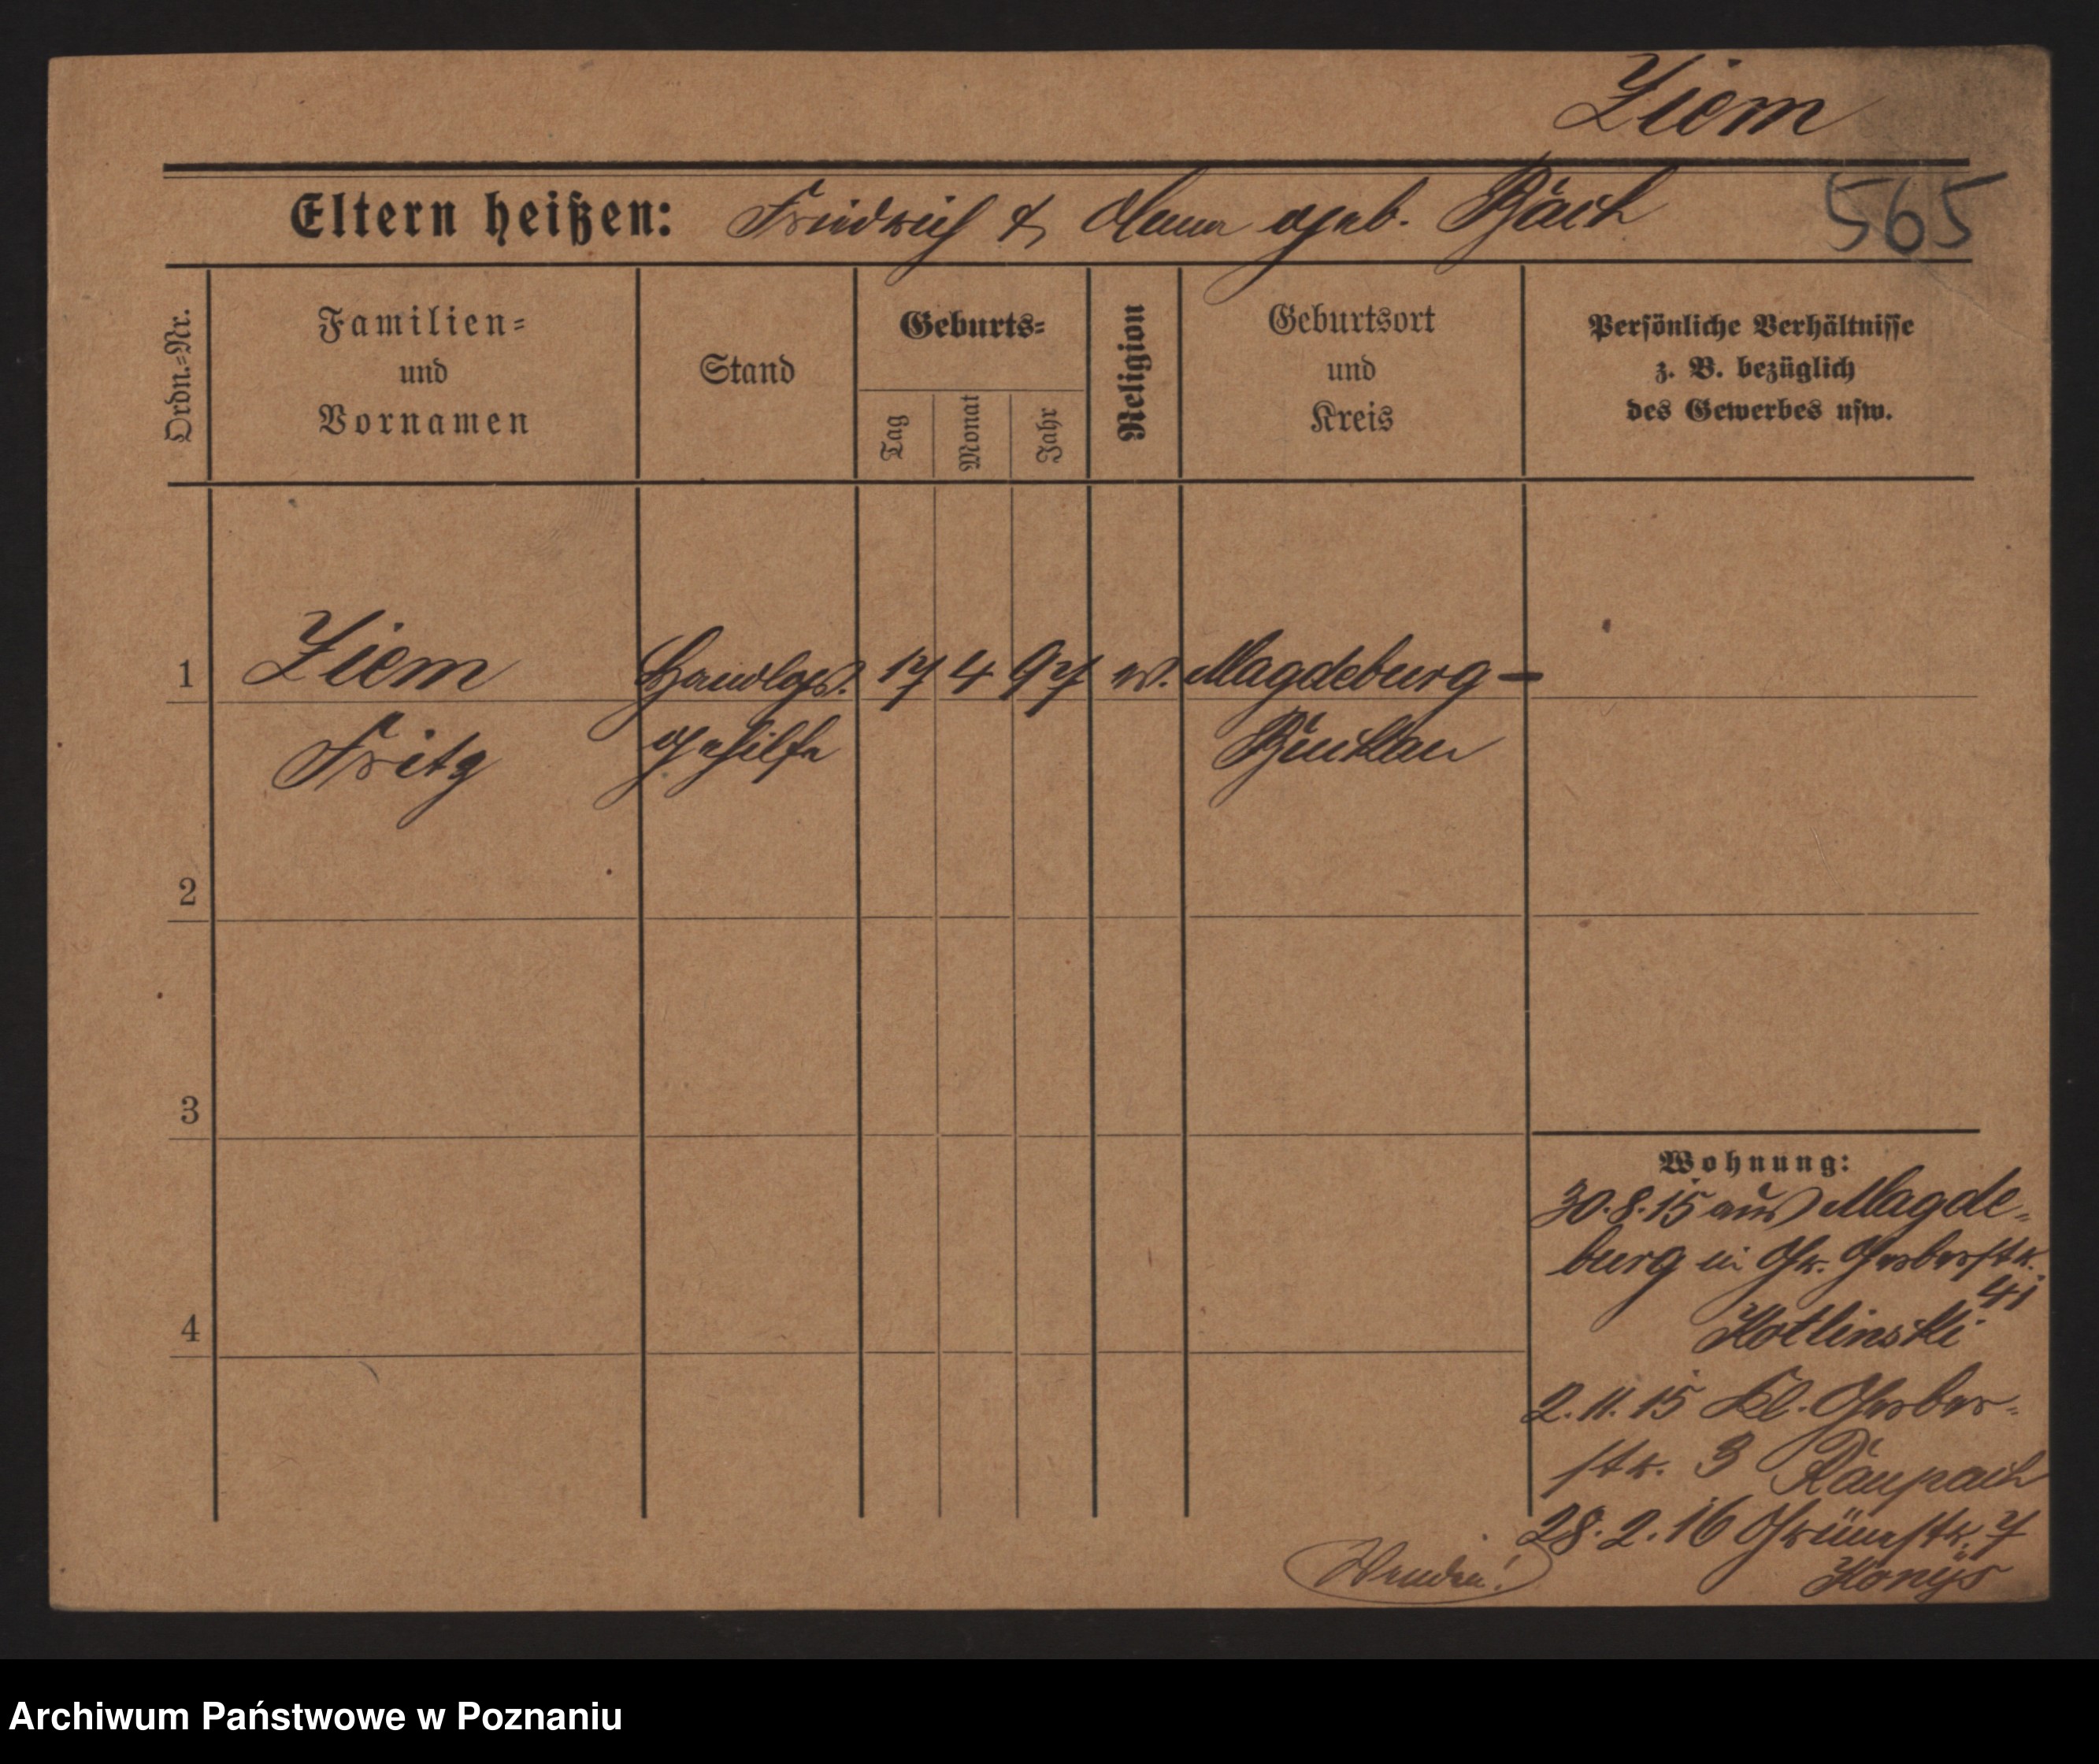 Ziem
565
Eltern heißen: Friedrich & Anna geb. Bäck
Ordn.=Nr.
Familien=
und
Vornamen
Stand
Geburts=
Tag
Monat
Jahr
Religion
Geburtsort
und
Kreis
Persönliche Verhältnisse
z. B. bezüglich
des Gewerbes usw.
1
Ziem
Handlgs.
17 4 97
ev.
Magdeburg-
Fritz
gehilfe
Buckau
2
3
4
Wohnung:
30.8.15 aus Magde-
burg in Gr. Gerberstr.
41
Kotlinski
2.11.15 Kl. Gerber-
str. 3 Raupach
28.2.16 Grünestr. 7
Wenden!
Archiwum Państwowe w Poznaniu